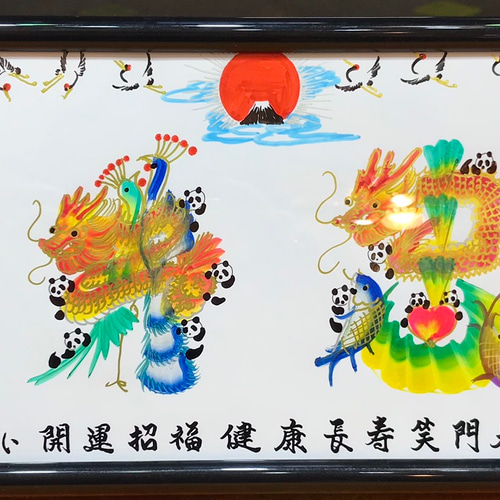 い 開運招福 健康長寿 笑門